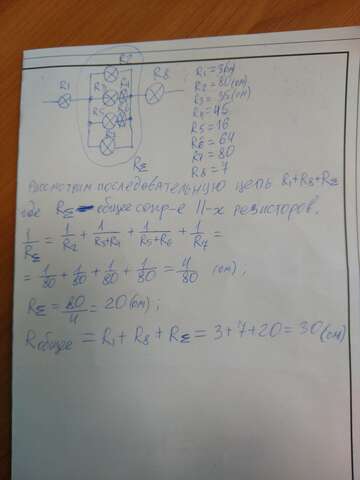 R7
R1
R8
RΣ
R1 = 3 Ом
R2 = 80 (ом)
R3 = 35 (ом)
R4 = 45
R5 = 16
R6 = 64
R7 = 80
R8 = 7
Рассмотрим последовательную цепь R1+R8+RΣ
где RΣ - общее сопр-е II-х резисторов.
1/RΣ = 1/R2 + 1/(R3+R4) + 1/(R5+R6) + 1/R7 =
= 1/80 + 1/80 + 1/80 + 1/80 = 4/80 (ом);
RΣ = 80/4 = 20 (ом);
Rобщее = R1 + R8 + RΣ = 3+7+20 = 30 (ом)